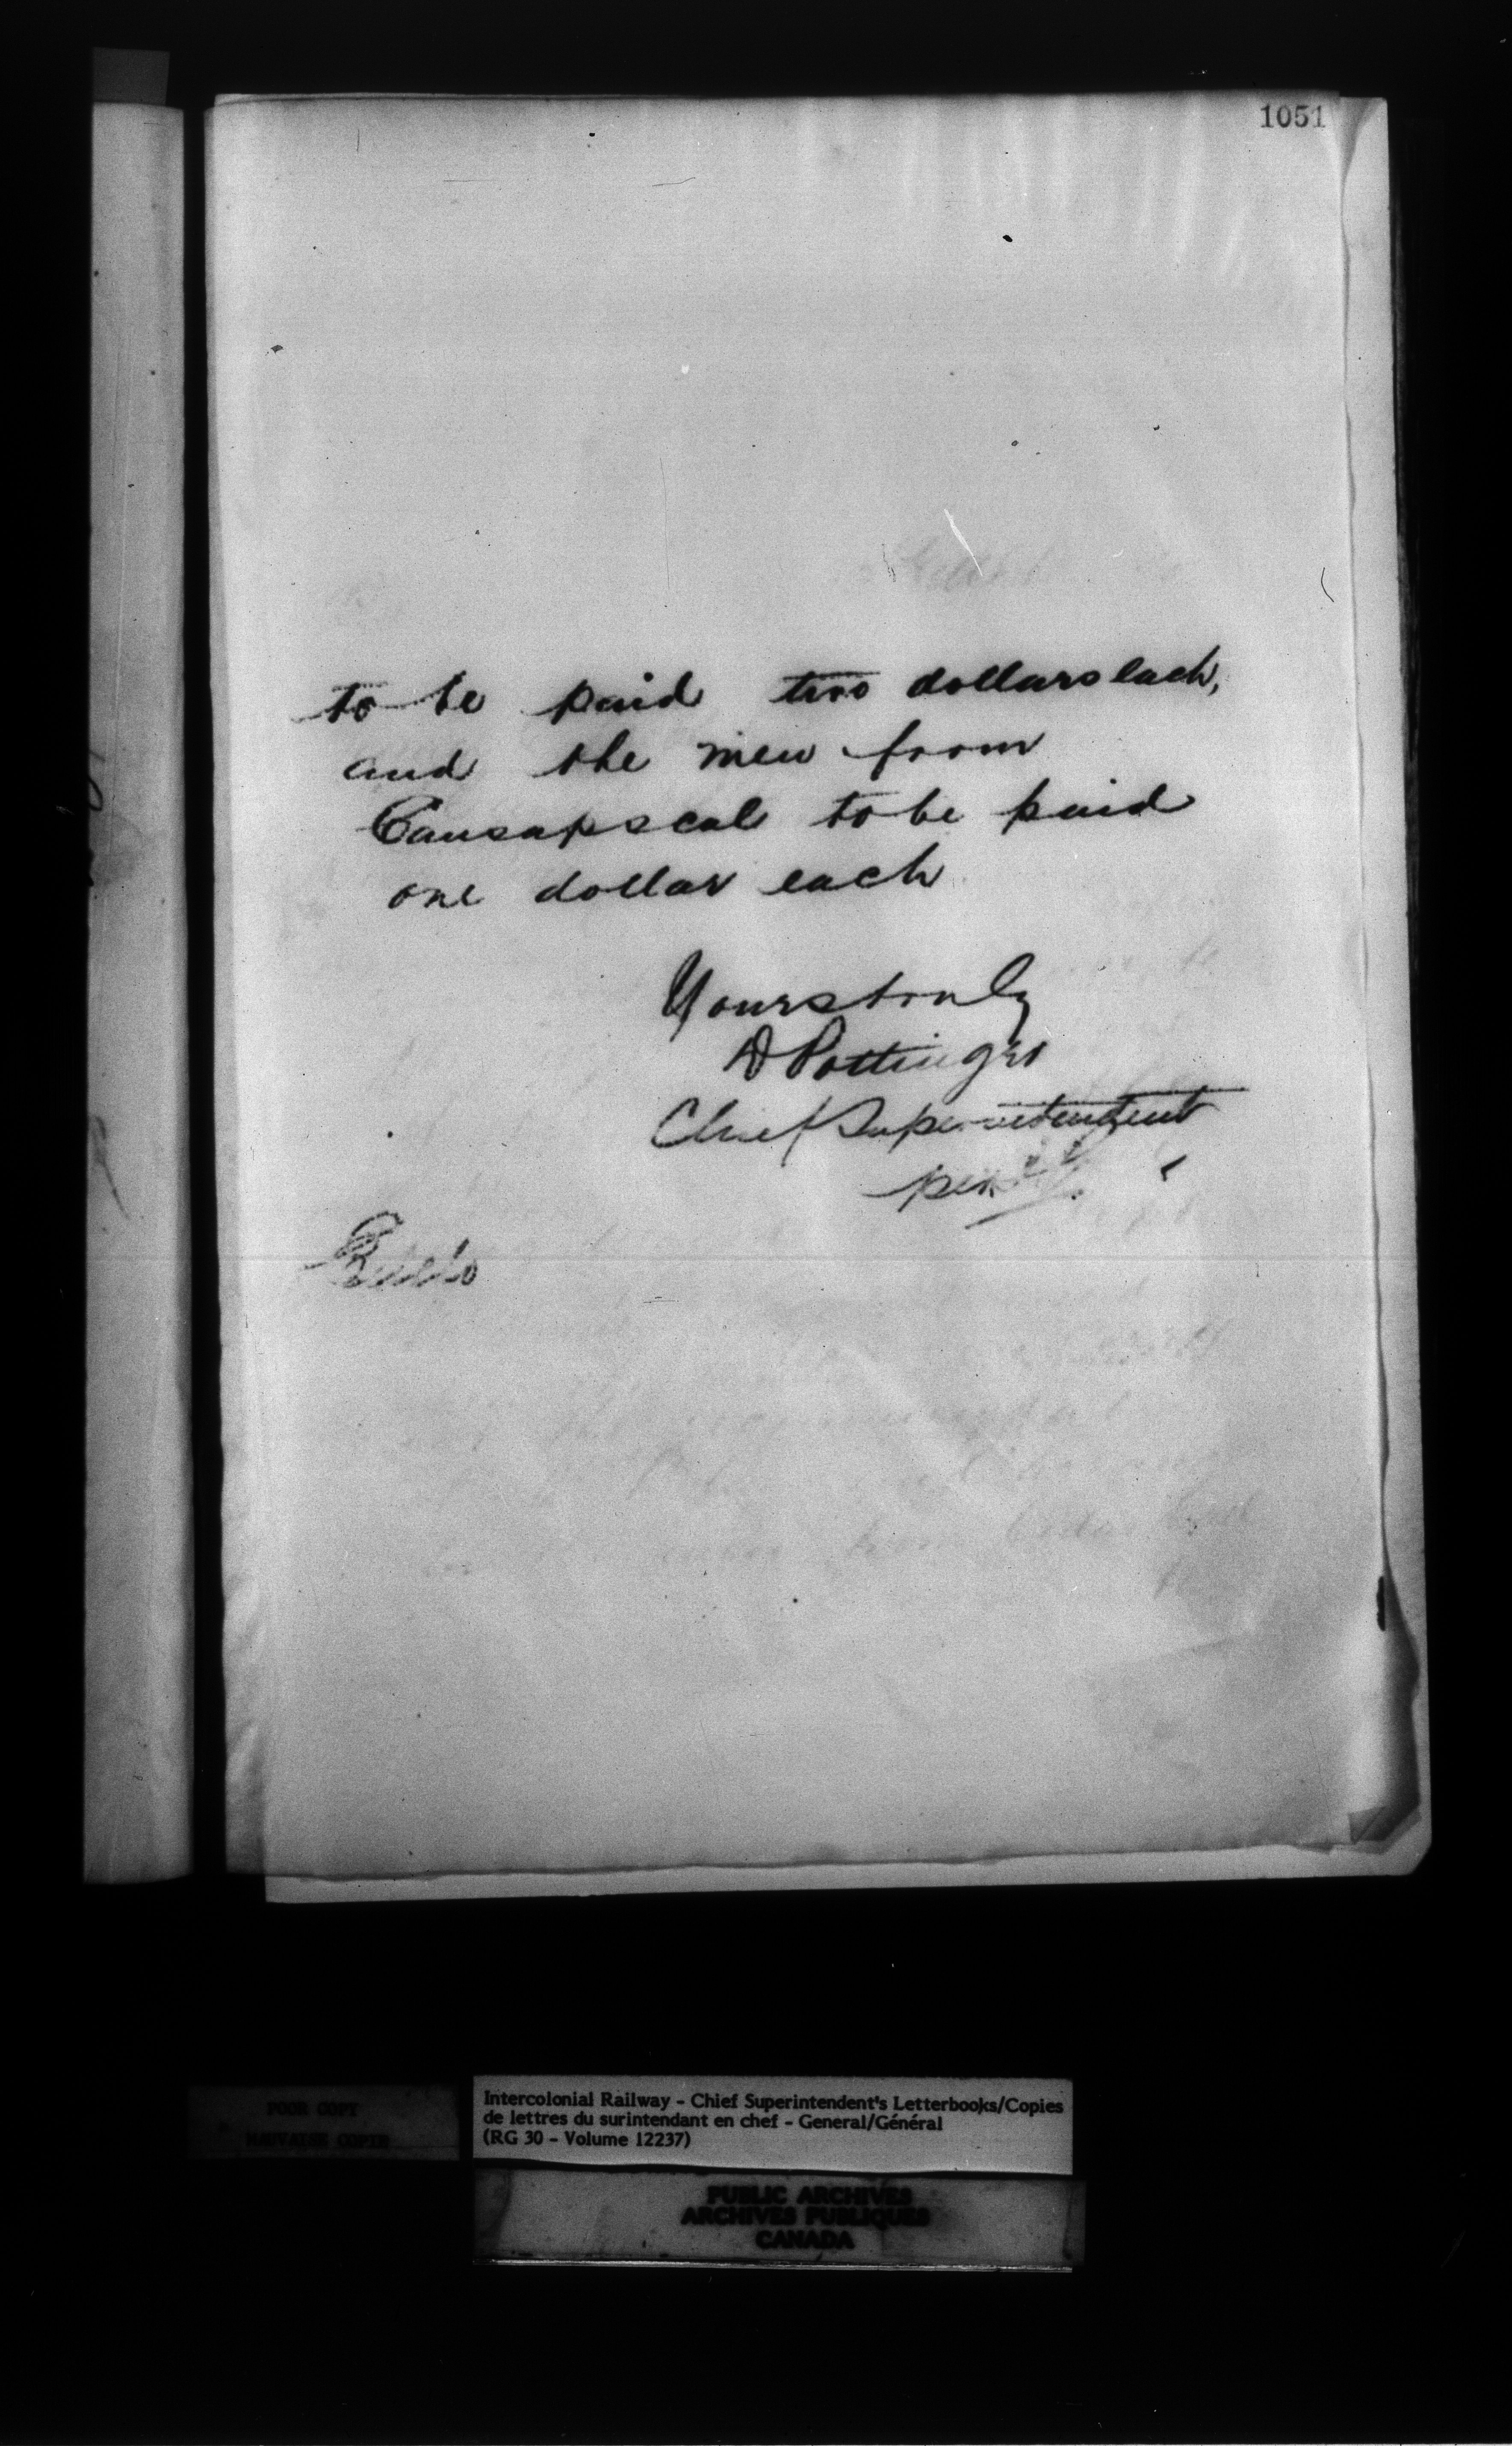 1051
to be paid two dollars each,
and the men from
Causapscal to be paid
one dollar each
Yours truly
D Pottinger
Chief Superintendent
per
POOR COPY
MAUVAISE COPIE
Intercolonial Railway - Chief Superintendent's Letterbooks/Copies
de lettres du surintendant en chef - General/Général
(RG 30 - Volume 12237)
PUBLIC ARCHIVES
ARCHIVES PUBLIQUES
CANADA